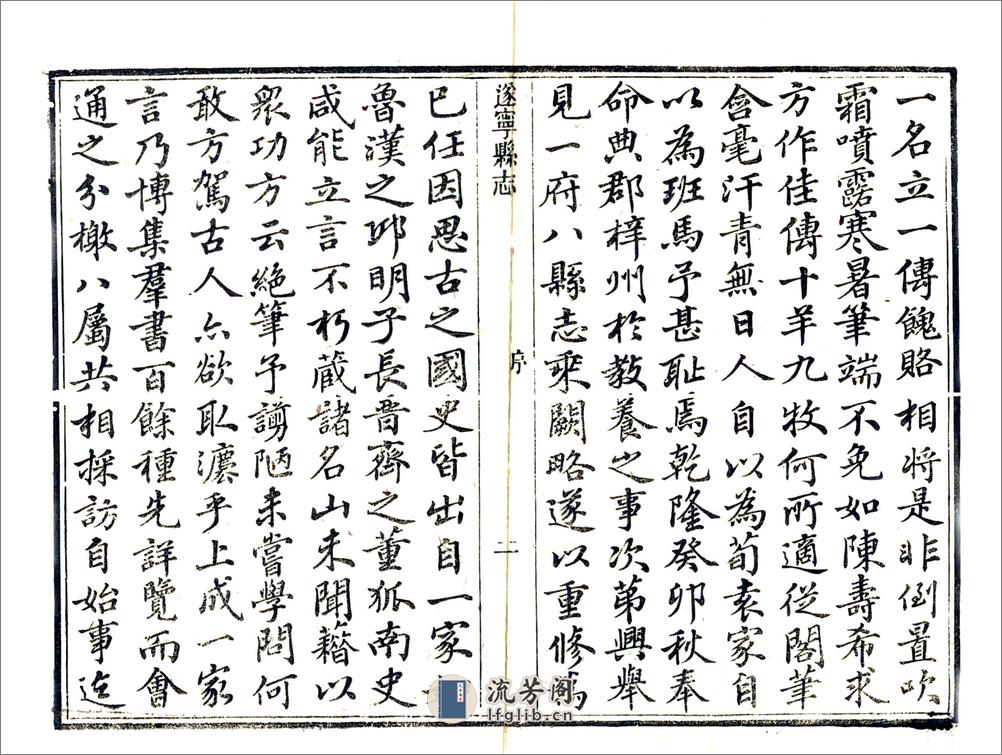 一名立一傳餽賂相將是非倒置吹
霜噴露寒暑筆端不免如陳壽希求
方作佳傳十羊九牧何所適從閣筆
含毫汗青無日人自以為荀袁家自
以為班馬予甚耻焉乾隆癸卯秋奉
命典郡梓州於教養之事次第興舉
見一府八縣志乘闕略遂以重修為
遂寧縣志
序
二
巳任因思古之國史皆出自一家
魯漢之邱明子長晋齊之董狐南史
咸能立言不朽蔵諸名山未聞藉以
衆功方云絕筆予謭陋未嘗學問何
敢方駕古人亦欲取灋乎上成一家
言乃博集羣書百餘種先詳覽而會
通之分檄八屬共相採訪自始事迄
流芳阁
lfglib.cn